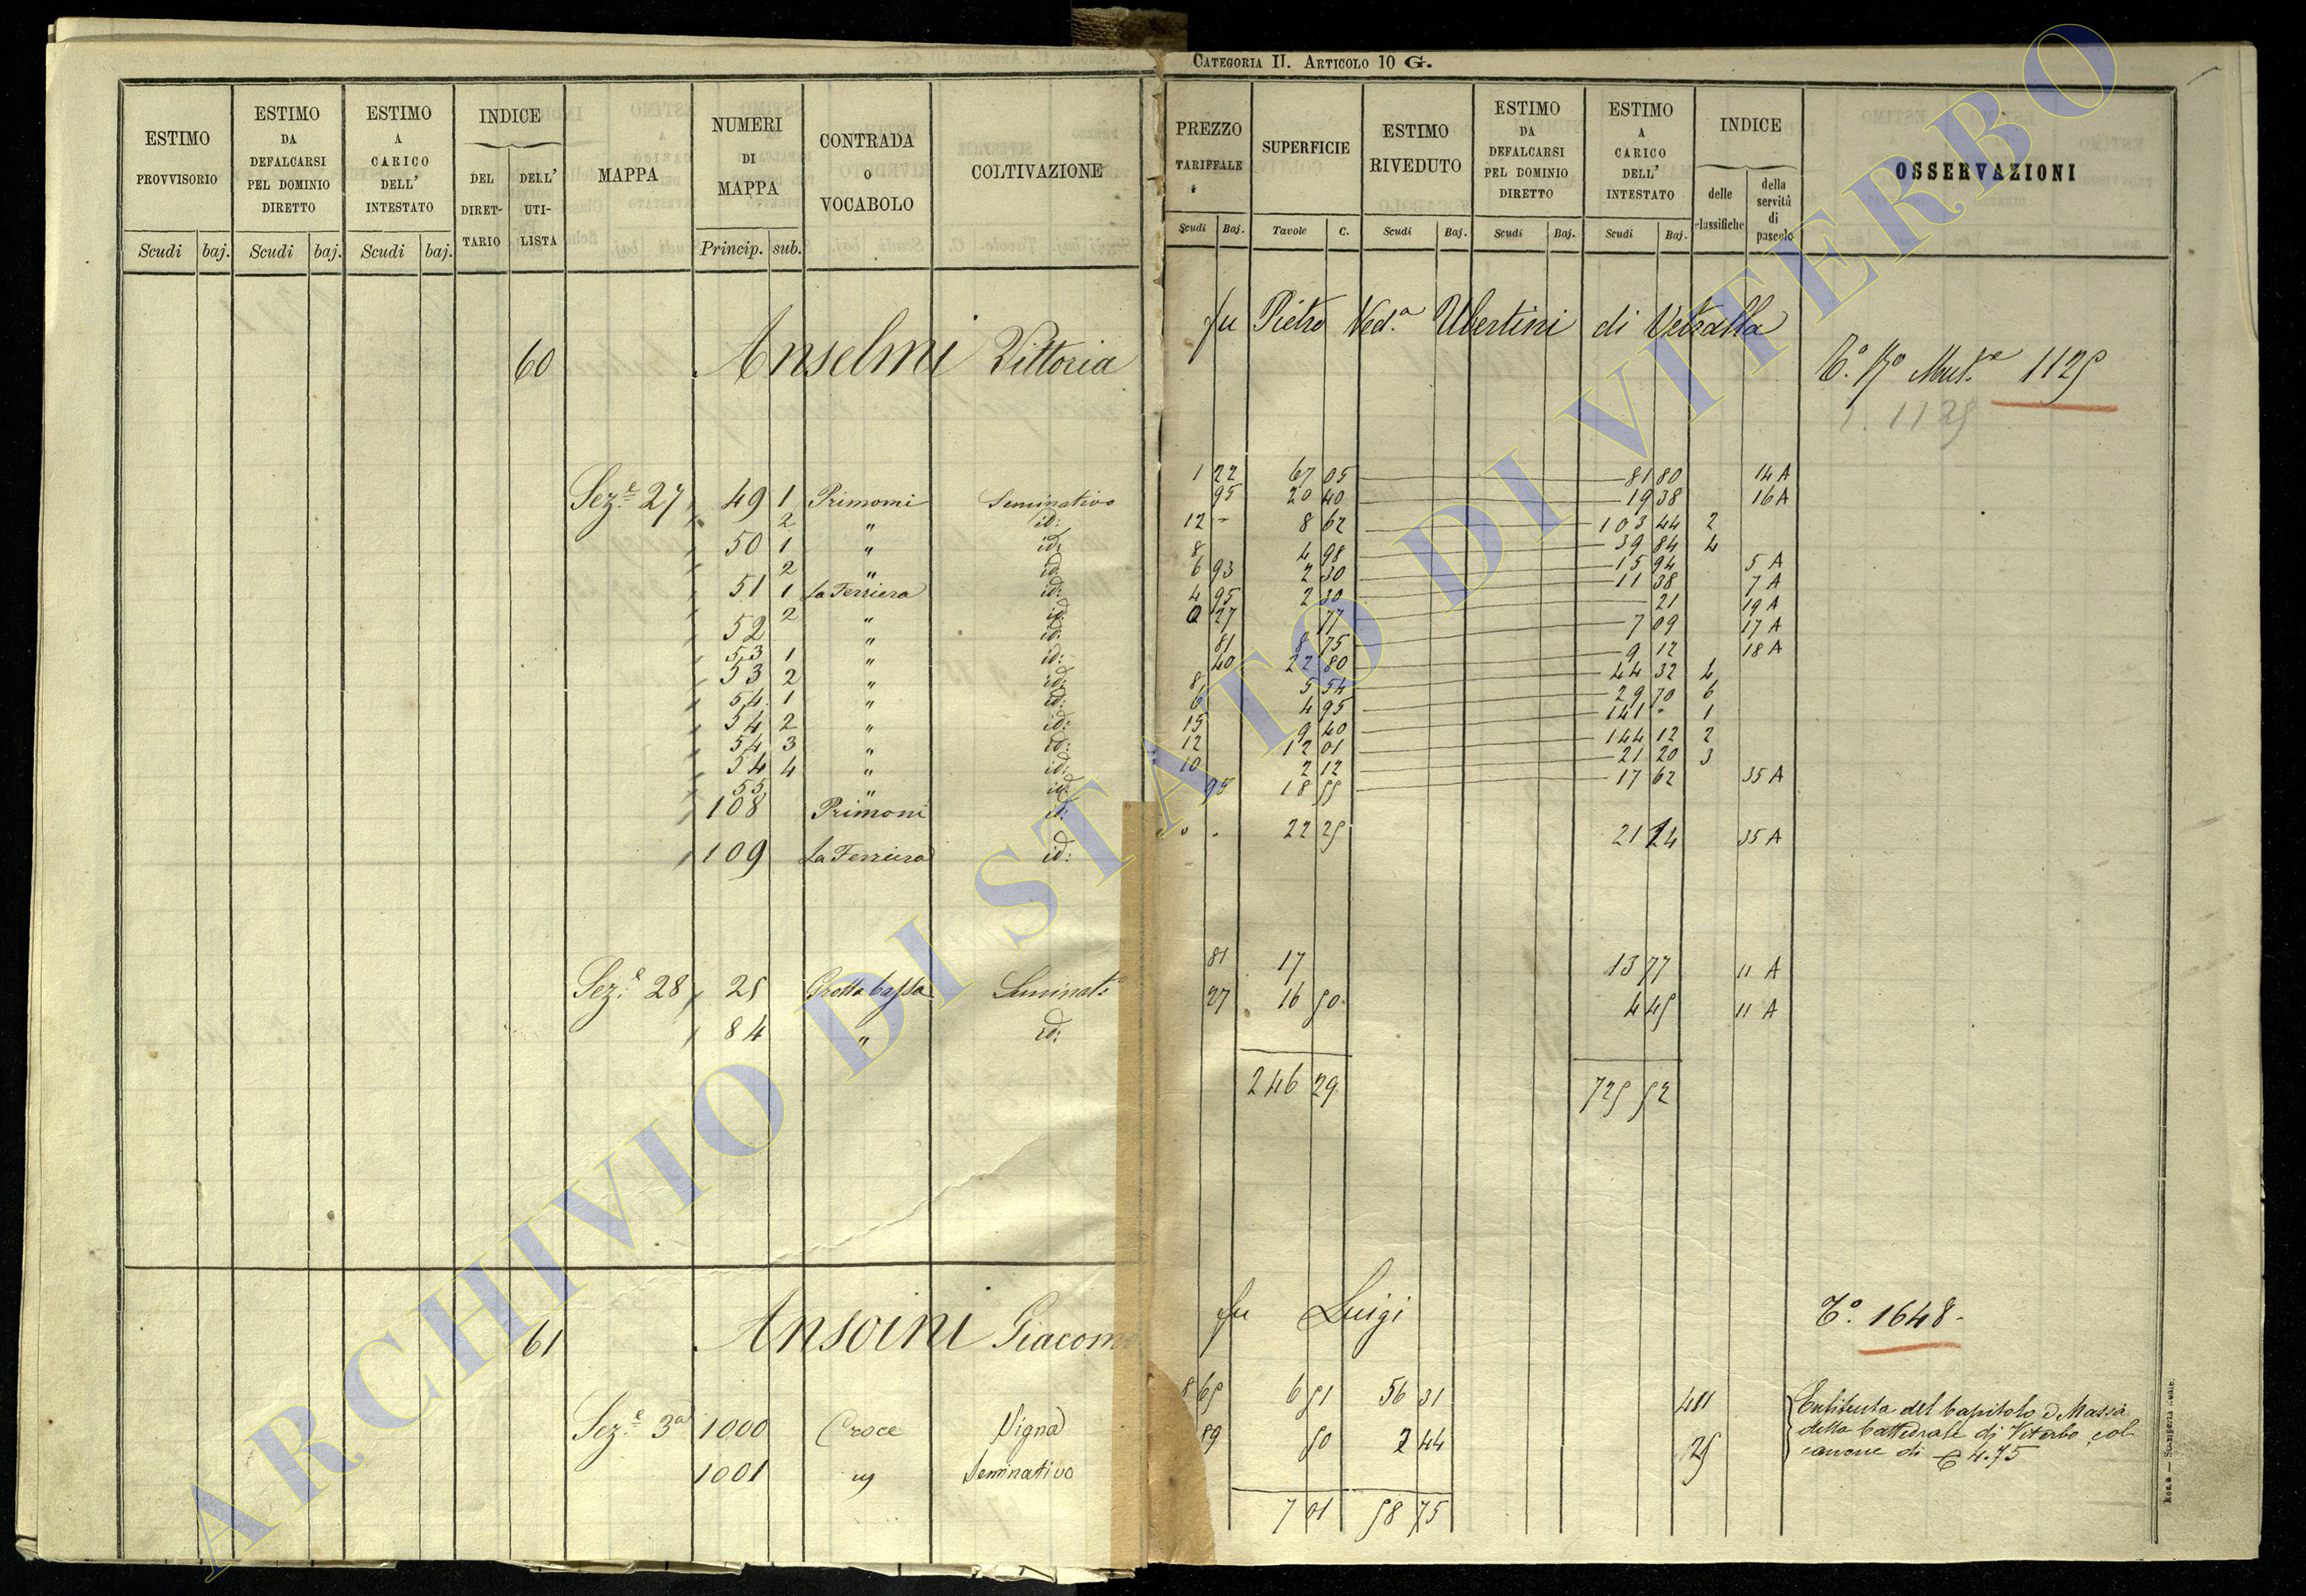 CATEGORIA II. ARTICOLO 10 G.
ESTIMO PROVVISORIO | ESTIMO DA DEFALCARSI PEL DOMINIO DIRETTO | ESTIMO A CARICO DELL' INTESTATO | INDICE | MAPPA | NUMERI DI MAPPA | CONTRADA O VOCABOLO | COLTIVAZIONE | PREZZO TARIFFALE | SUPERFICIE | ESTIMO RIVEDUTO | ESTIMO DA DEFALCARSI PEL DOMINIO DIRETTO | ESTIMO A CARICO DELL' INTESTATO | INDICE | OSSERVAZIONI
DEL DIRETTARIO | DELL' UTILISTA | delle classifiche | della servitù di pascolo
Scudi | baj. | Scudi | baj. | Scudi | baj. | Princip. | sub. | Scudi | Baj. | Tavole | C. | Scudi | Baj. | Scudi | Baj. | Scudi | Baj.
60 Anselmi Vittoria fu Pietro Ved.a Ubertini di Vetralla
Mut. 1125
1125
Sez.e 27 49 1 Primomi Seminativo 1 22 67 05 81 80 14 A
2 " id: 95 20 40 19 38 16 A
50 1 " id: 12 - 8 62 103 44 2
2 " id 8 4 98 39 84 4
51 1 La Ferriera id: 6 93 2 30 15 94 5 A
2 " id: 4 95 2 30 11 38 7 A
52 " id: 0 27 77 21 19 A
53 1 " id: 81 8 75 7 09 17 A
53 2 " id: 40 22 80 9 12 18 A
54 1 " id: 8 5 54 44 32 4
54 2 " id: 6 4 95 29 70 6
54 3 " id: 15 9 40 141 - 1
54 4 " id: 12 12 01 144 12 2
55 " id: 10 2 12 21 20 3
108 Primomi id: 95 18 55 17 62 35 A
109 La Ferriera id: " . 22 25 21 14 35 A
Sez.e 28 25 Grotta bassa Seminat.o 81 17 13 77 11 A
84 " id: 27 16 50 4 45 11 A
246 29 725 52
61 Ansoini Giacomo fu Luigi
T.o 1648.
Sez.e 3a 1000 Croce Vigna 8 65 6 51 56 31 411
1001 " Seminativo 89 50 2 44 25
Enfiteuta del Capitolo e Massa
della Cattedrale di Viterbo col
canone di 4.75
7 01 58 75
Roma — Stamperia Reale.
ARCHIVIO DI STATO DI VITERBO